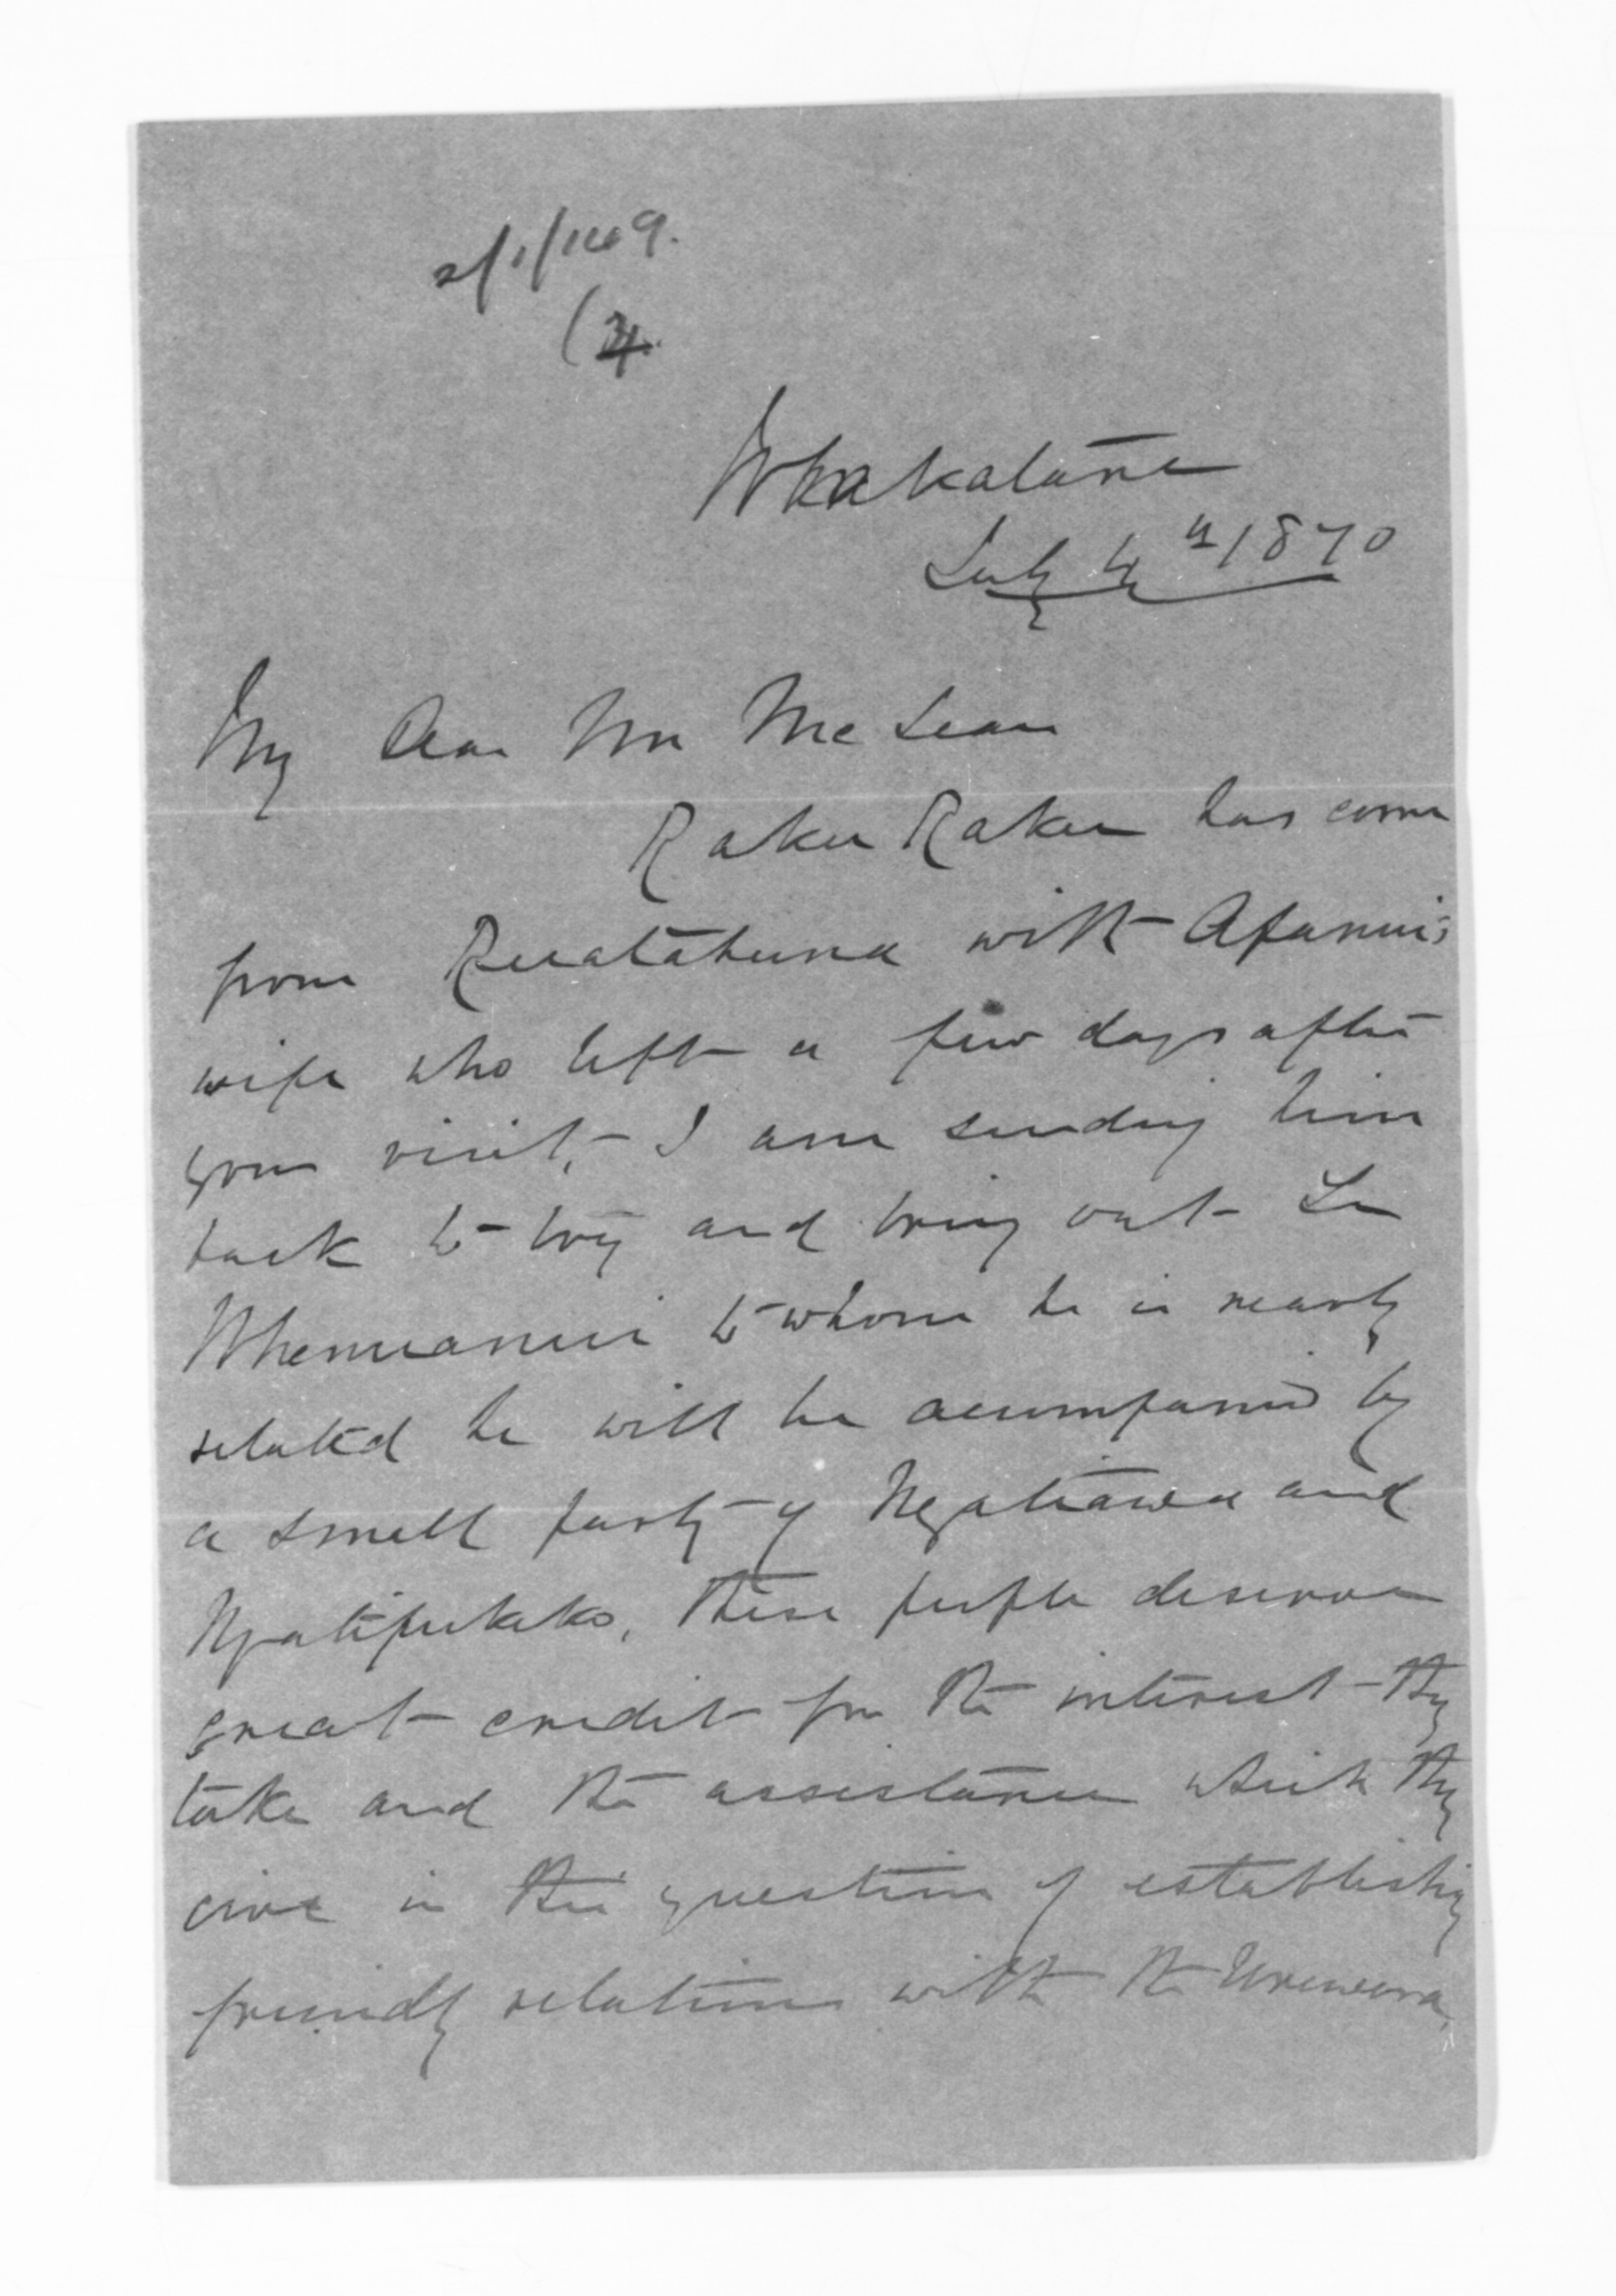 Whakatane
July 4th 1870
My Dear Mr McLean
Raku Raku has come
from Ruatahuna with Apanui's
wife who left a few days after
your visit, - I am sending him
back to try and bring out Te
Whenuanui to whom he is nearly
related he will be accompanied by
a small party of Ngatiawa and
Ngatipukeko, these people deserve
great credit for the interest they
take and the assistance which they
give in the question of establishing
friendly relations with the Urewera,